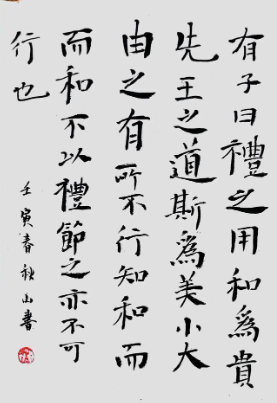 有子曰禮之用和為貴
先王之道斯為美小大
由之有所不行知和而
而和不以禮節之亦不可
行也
壬寅春秋山書